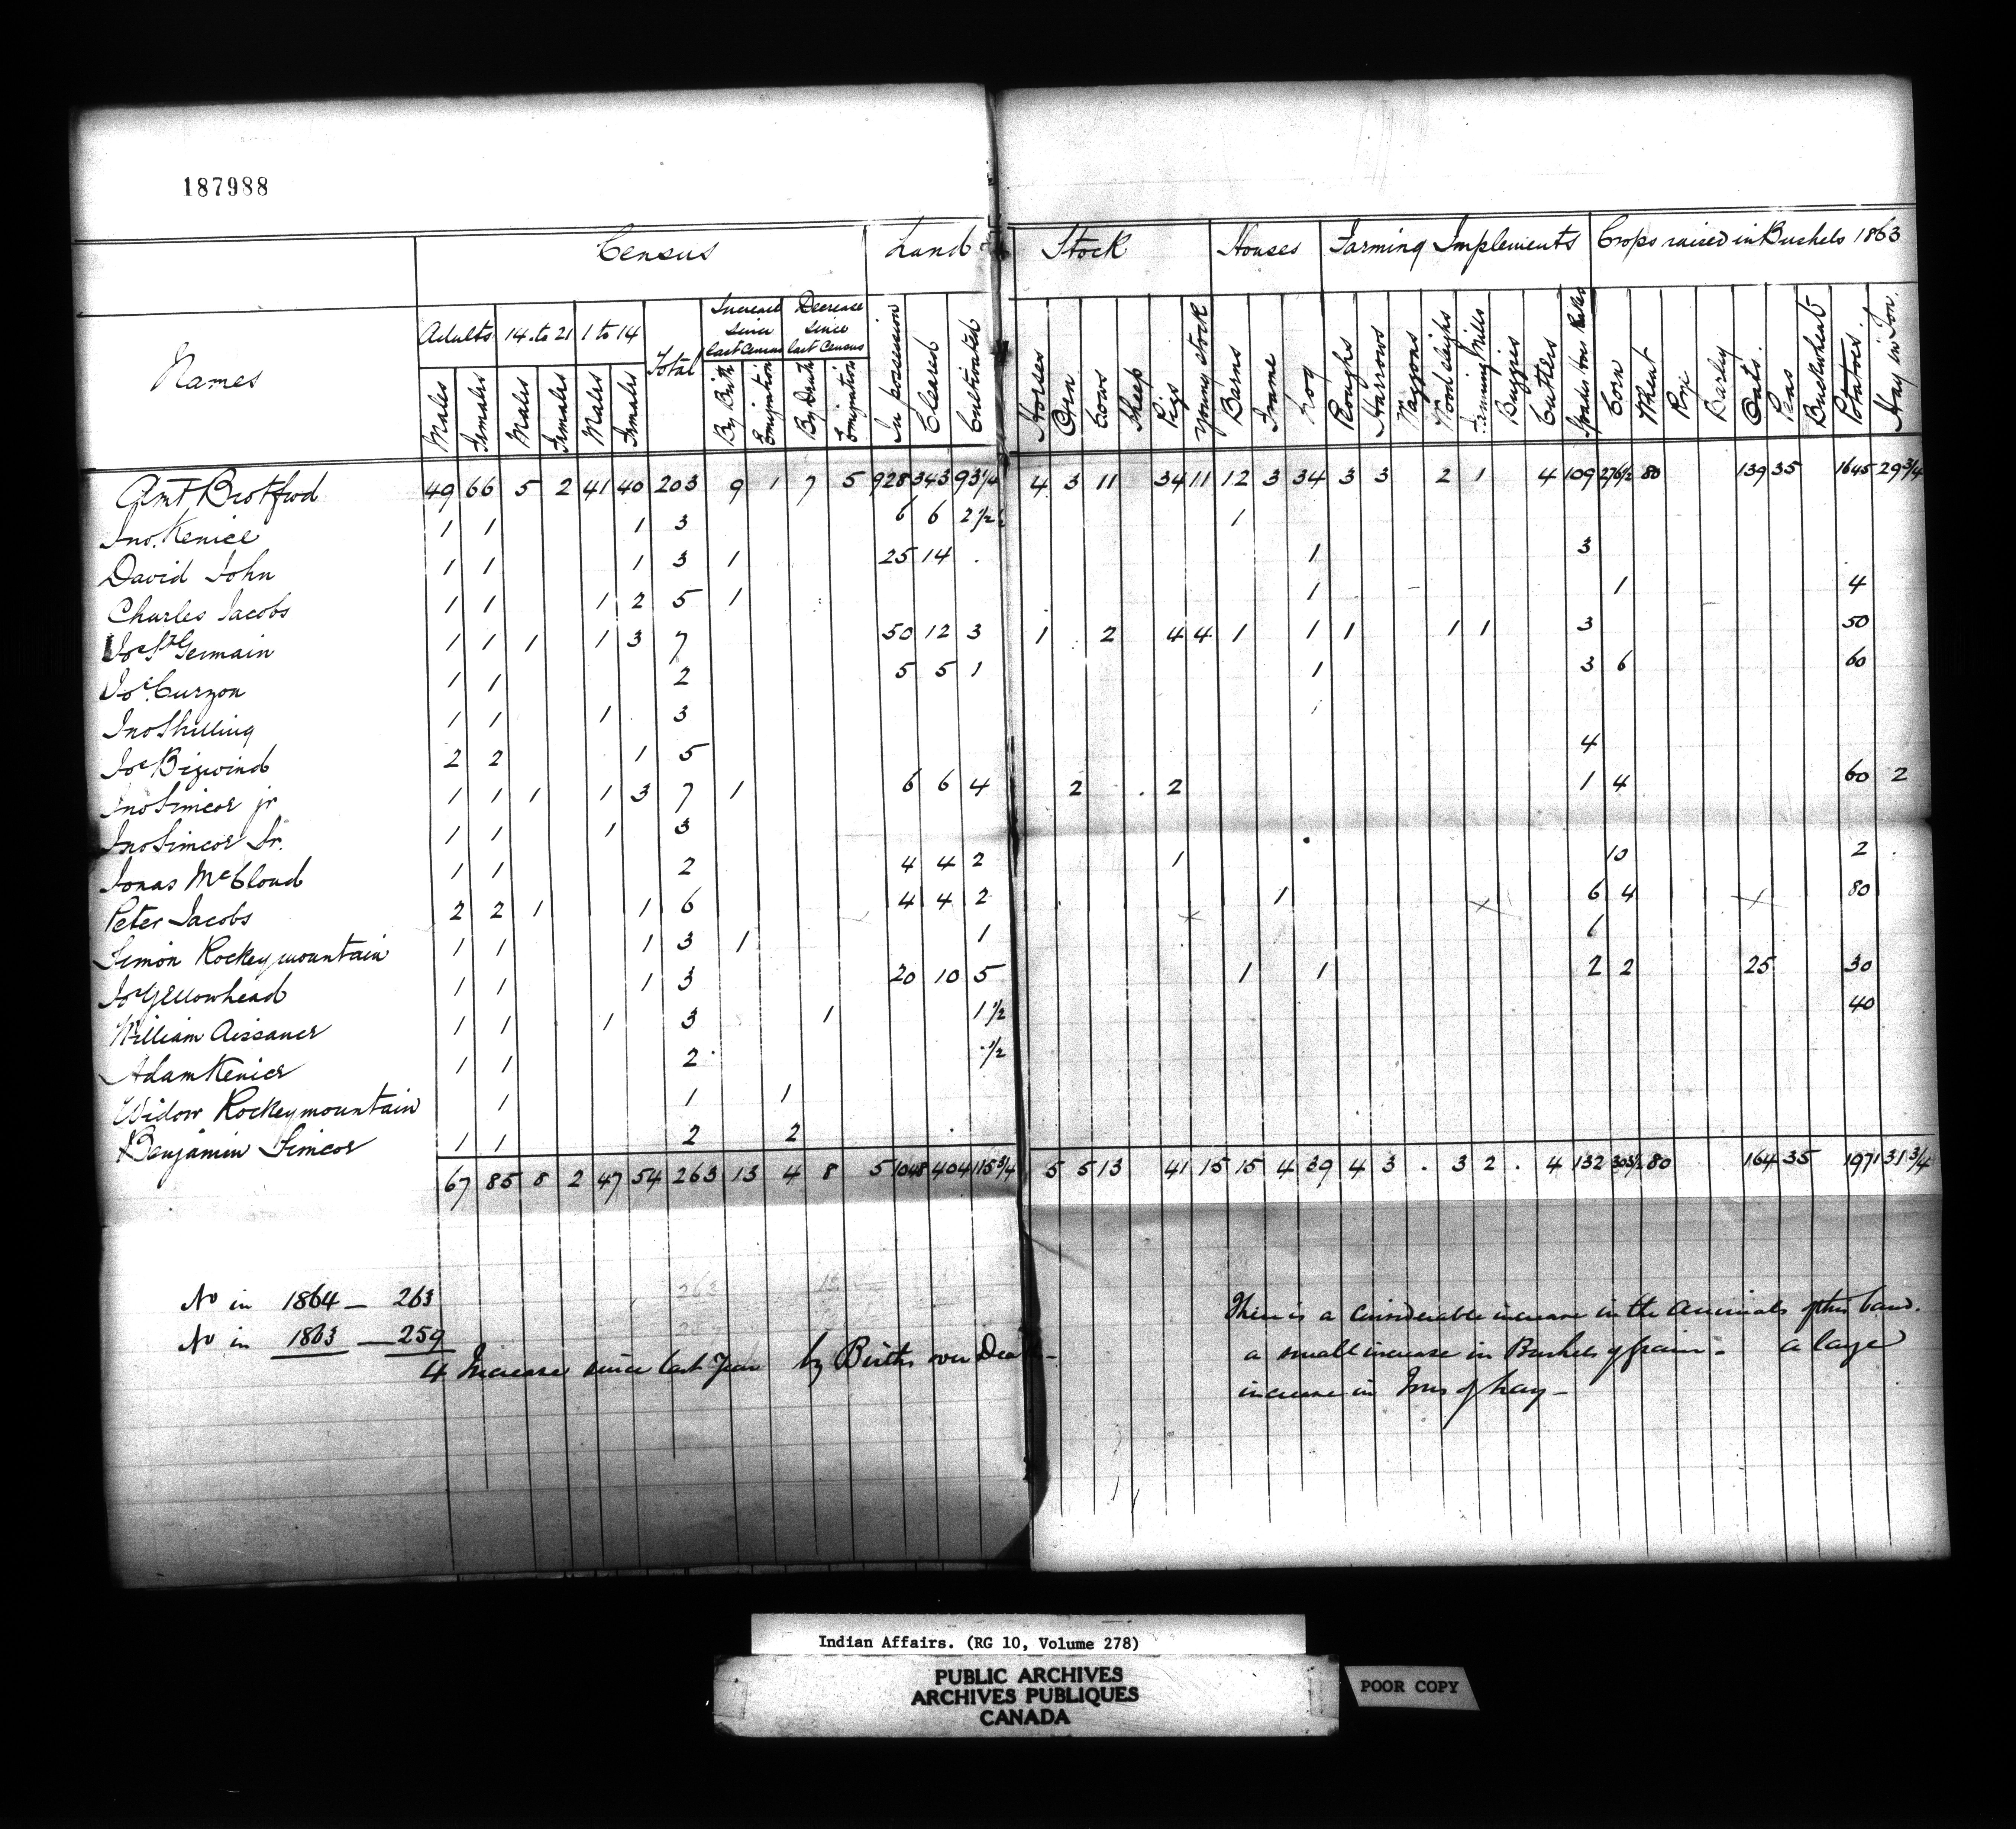 187988
Census Land Stock Houses Farming Implements Crops raised in Bushels 1863
Names Adults 14 to 21 1 to 14 Total Increase since last Census Decrease since last Census
Males Females Males Females Males Females By Birth Emigration By Death Emigration In possession Cleared Cultivated Horses Oxen Cows Sheep Pigs Young stock Barns Frame Log Ploughs Harrows Waggons Wood sleighs Fanning Mills Buggies Cutters Corn Wheat Rye Barley Oats Peas Buckwheat Potatoes Hay in Ton
Amt Brotfwd 49 66 5 2 41 40 203 9 1 7 5 928 343 93 1/4 4 3 11 34 11 12 3 34 3 3 2 1 4 109 276 1/2 80 139 35 1645 29 3/4
Jno. Kenice 1 1 1 3 6 6 2 1/2 1
David John 1 1 1 3 1 25 14 1 3
Charles Jacobs 1 1 1 2 5 1 1 1 4
Jos St Germain 1 1 1 1 3 7 50 12 3 1 2 4 4 1 1 1 1 1 3 50
Jos Curzon 1 1 2 5 5 1 1 3 6 60
Jno Shilling 1 1 1 3
Jos Bigwind 2 2 1 5 4
Jno Simcoe jr 1 1 1 1 3 7 1 6 6 4 2 2 1 4 60 2
Jno Simcoe Sr. 1 1 1 3
Jonas McCloud 1 1 2 4 4 2 1 10 2
Peter Jacobs 2 2 1 1 6 4 4 2 1 6 4 80
Simon Rockeymountain 1 1 1 3 1 1 1
Jos Yellowhead 1 1 1 3 20 10 5 1 1 2 2 25 30
William Aissance 1 1 1 3 1 1 1/2 40
Adam Kenice 1 1 2 1/2
Widow Rockeymountain 1 1 1
Benjamin Simcoe 1 1 2 2
67 85 8 2 47 54 263 13 4 8 5 1048 404 115 3/4 5 5 13 41 15 15 4 39 4 3 . 3 2 . 4 132 303 1/2 80 164 35 1971 31 3/4
No in 1864 — 263
No in 1863 — 259
4 Increase since last Year by Births over Death
There is a Considerable increase in the Animals of this band.
a small increase in Bushels of grain - a large
increase in Tons of hay -
Indian Affairs. (RG 10, Volume 278)
PUBLIC ARCHIVES
ARCHIVES PUBLIQUES
CANADA
POOR COPY